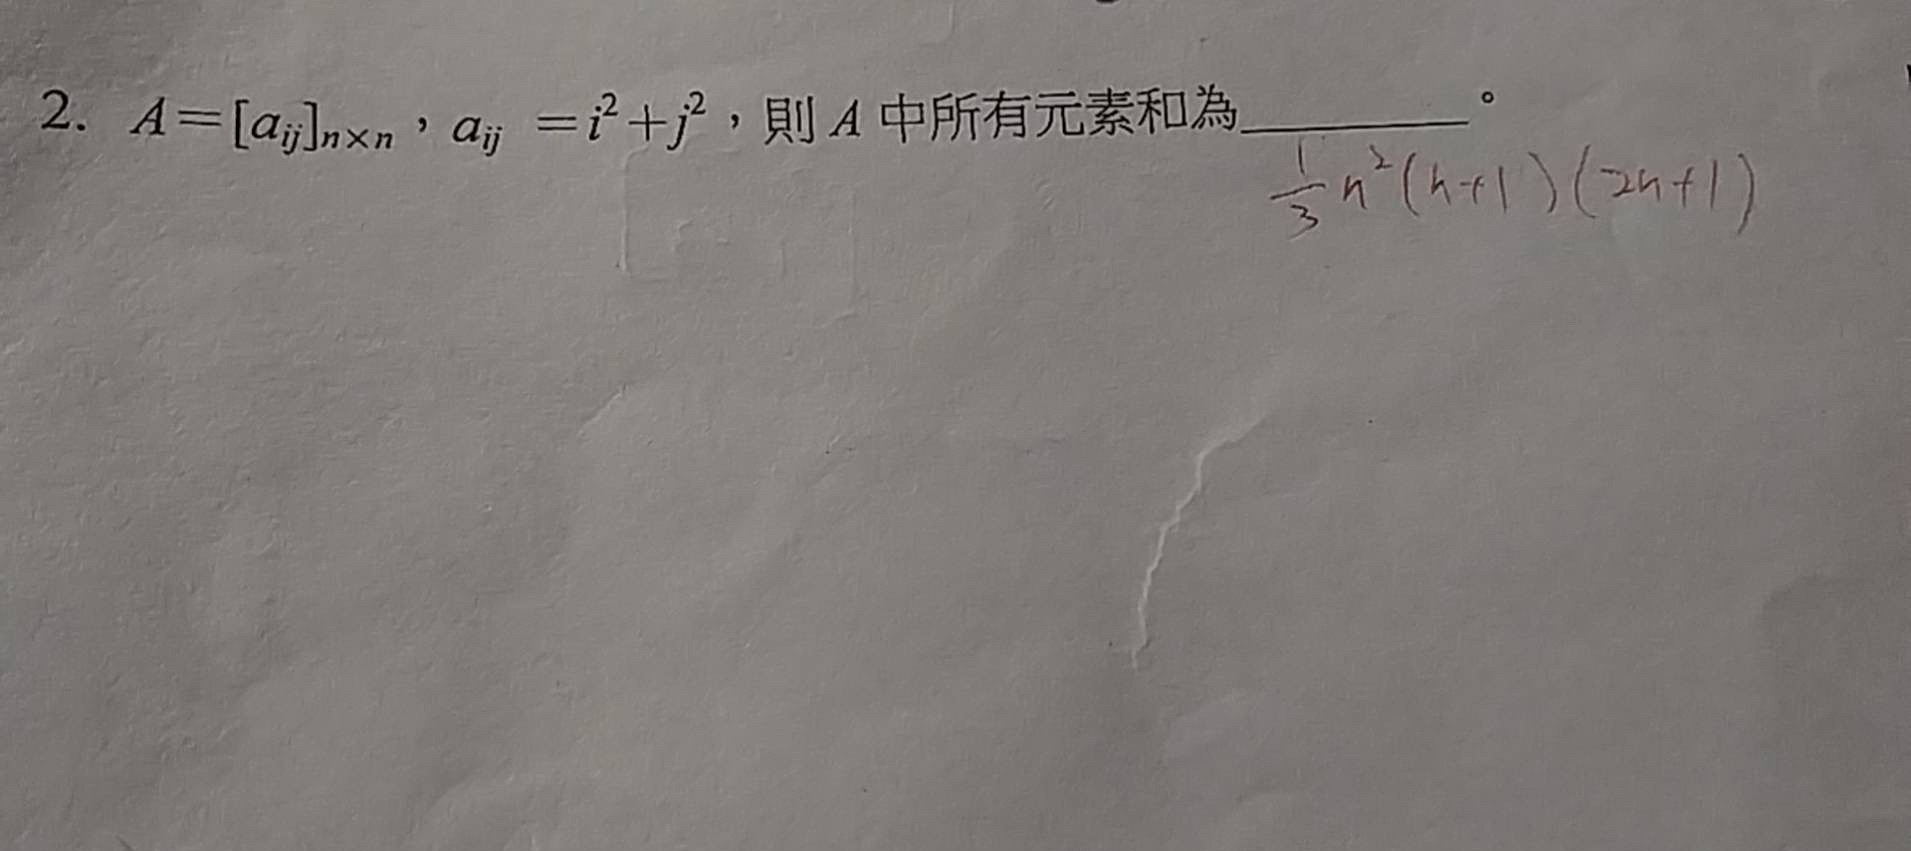 2. A=[aij]n×n，aij =i²+j²，則 A 中所有元素和為________。
1/3 n²(n+1)(2n+1)